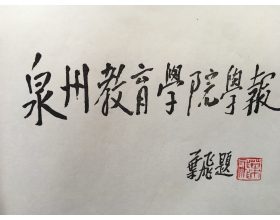 泉州教育學院學報
題